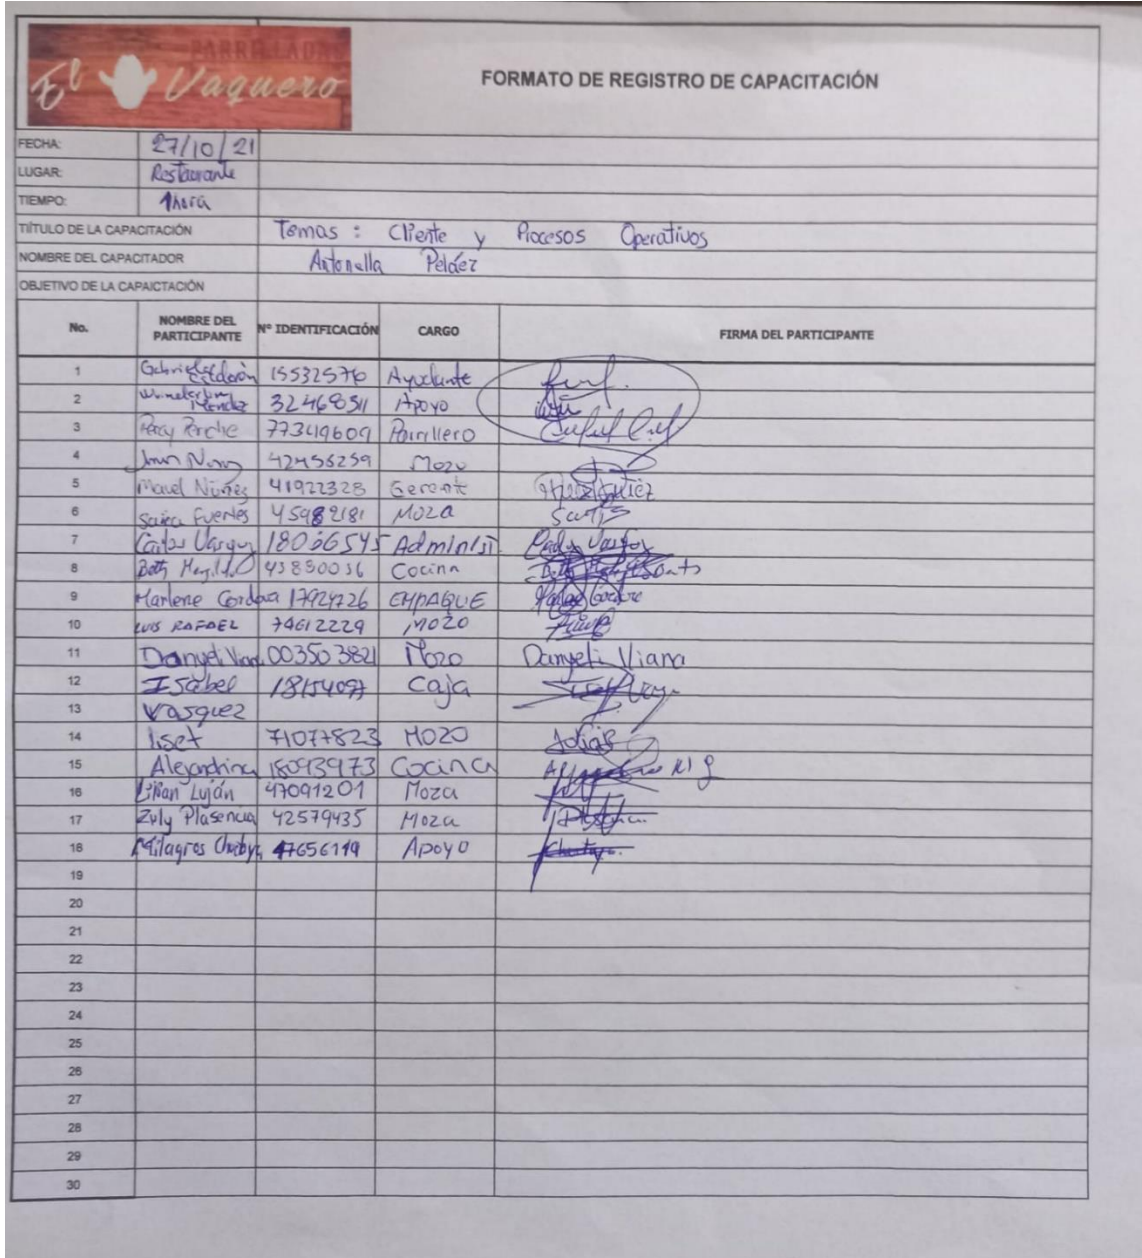 PARRILLADA
El Vaquero
FORMATO DE REGISTRO DE CAPACITACIÓN
FECHA: 27/10/21
LUGAR: Restaurante
TIEMPO: 1 hora
TÍTULO DE LA CAPACITACIÓN Temas : Cliente y Procesos Operativos
NOMBRE DEL CAPACITADOR Antonella Peláez
OBJETIVO DE LA CAPAICTACIÓN
No. NOMBRE DEL PARTICIPANTE N° IDENTIFICACIÓN CARGO FIRMA DEL PARTICIPANTE
1 Gabriel Calderón 15532576 Ayudante
2 Mendez 32468511 Apoyo
3 Percy 77349609 Parrillero
4 42456259 Mozo
5 Núñez 41922328 Gerente
6 Fuentes 45982181 Moza
7 Carlos Vasquez 18066545 Administ
8 Betty 43850036 Cocina
9 Marlene Cordova 17924726 EMPAQUE
10 LUIS RAFAEL 74612229 MOZO
11 Danyeli Viana 003503821 Mozo Danyeli Viana
12 Isabel 18154097 Caja
13 Vasquez
14 liset 71077823 MOZO
15 Alejandrina 18093973 Cocina
16 Lilian Luján 47091201 Moza
17 Zuly Plasencia 42579435 Moza
18 Milagros 47656119 Apoyo
19
20
21
22
23
24
25
26
27
28
29
30